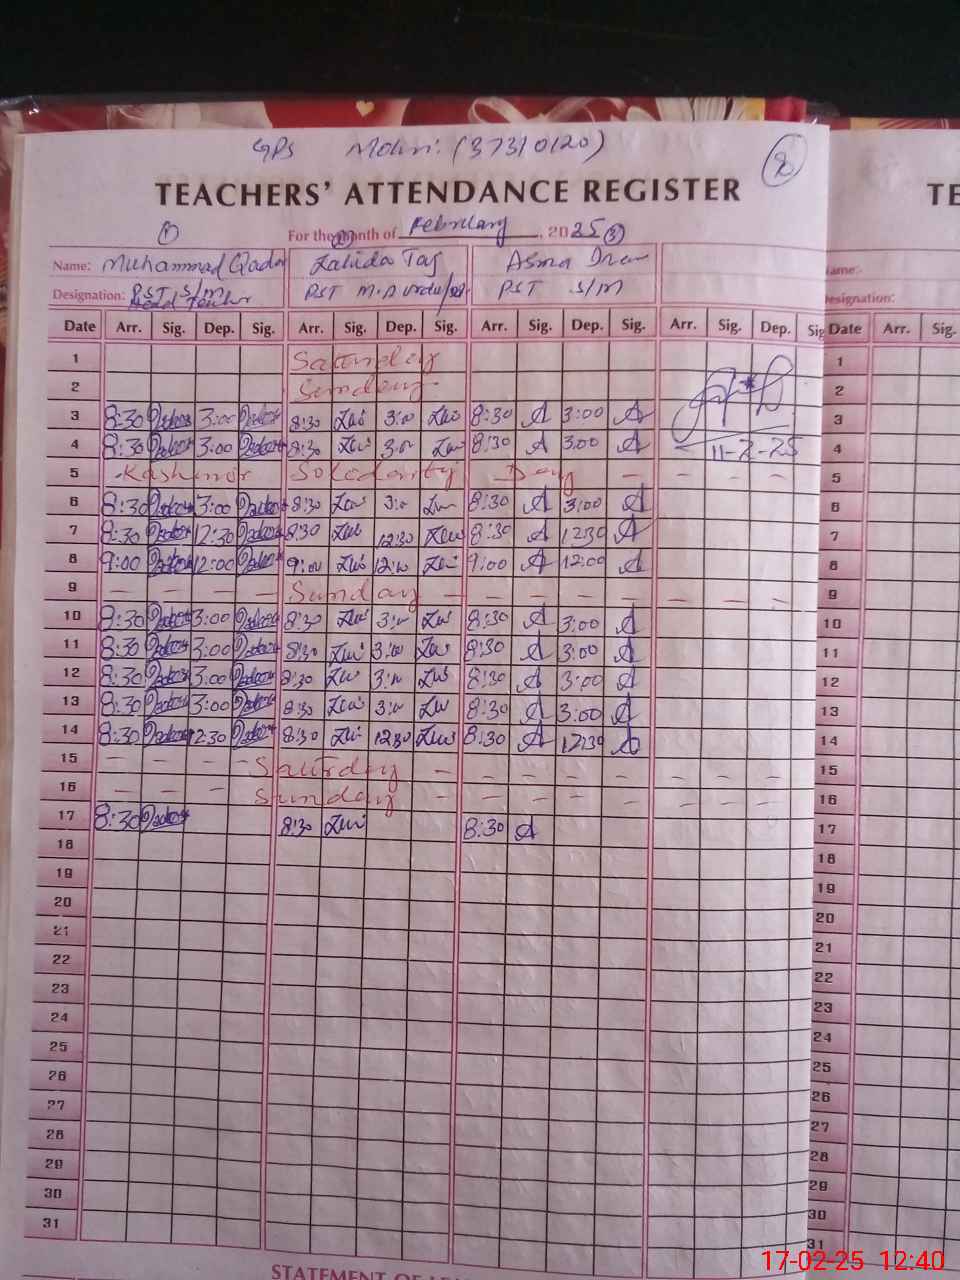 GPS Mohri: (37310120)
2
TEACHERS' ATTENDANCE REGISTER TE
1 For the month of February, 2025
2 3
Name: Muhammad Qadar Zahida Taj Asma Name:
Designation: PST S/M Head Teacher PST M.A urdu PST S/M Designation:
Date Arr. Sig. Dep. Sig. Arr. Sig. Dep. Sig. Arr. Sig. Dep. Sig. Arr. Sig. Dep. Sig Date Arr. Sig.
1 Saturday 1
2 Sunday 2
3 8:30 3:00 8:30 3:00 8:30 A 3:00 A 3
4 8:30 3:00 8:30 3:00 8:30 A 3:00 A 11-2-25 4
5 Kashmir Solidarity Day - - - - - 5
6 8:30 3:00 8:30 3:00 8:30 A 3:00 A 6
7 8:30 12:30 8:30 12:30 8:30 A 1230 A 7
8 9:00 12:00 9:00 12:00 9:00 A 12:00 A 8
9 - - - - Sunday - - - - - - - - 9
10 8:30 3:00 8:30 3:00 8:30 A 3:00 A 10
11 8:30 3:00 8:30 3:00 8:30 A 3:00 A 11
12 8:30 3:00 8:30 3:00 8:30 A 3:00 A 12
13 8:30 3:00 8:30 3:00 8:30 A 3:00 A 13
14 8:30 12:30 8:30 12:30 8:30 A 1230 A 14
15 - - - - Saturday - - - - - - - - 15
16 - - - Sunday - - - - - - - - 16
17 8:30 8:30 8:30 A 17
18 18
19 19
20 20
21 21
22 22
23 23
24 24
25 25
26 26
27 27
28 28
29 29
30 30
31 31
STATEMENT OF
17-02-25 12:40